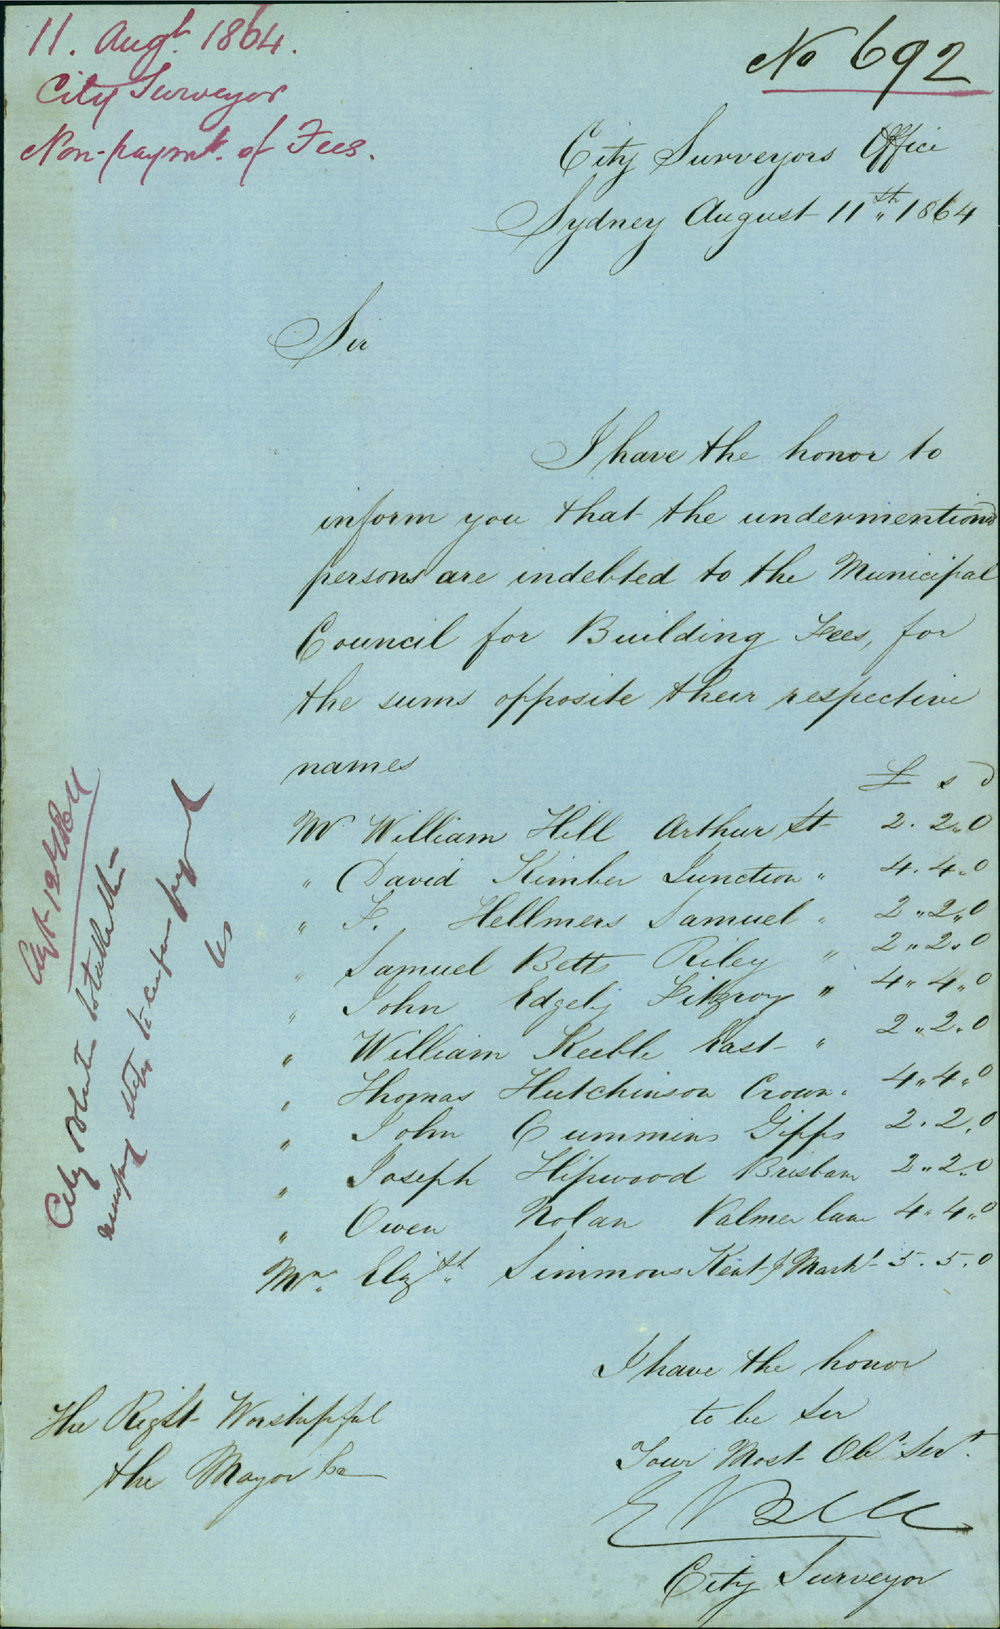 11. Augt. 1864.
City Surveyor
Non-paymt. of Fees.
No 692
City Surveyors Office
Sydney August 11th 1864
Sir
I have the honor to
inform you that the undermentiond
persons are indebted to the Municipal
Council for Building Fees, for
the sums opposite their respective
names
£ s d
Mr William Hill Arthur St 2. 2.. 0
" David Kimber Junction " 4. 4.. 0
" F. Hellmers Samuel " 2 .. 2.. 0
" Samuel Betts Riley " 2 .. 2.. 0
" John Edgely Fitzroy " 4 .. 4.. 0
" William Keeble East " 2 .. 2. 0
" Thomas Hutchinson Crown " 4.. 4.. 0
" John Cummins Gipps 2. 2. 0
" Joseph Hipwood Brisbane 2.. 2.. 0
" Owen Nolan Palmer lane 4. 4.. 0
Mrs. Elizth. Simmons Kent & Markt 5. 5. 0
I have the honor
to be Sir
Your Most Obt. Servt.
E Bell
City Surveyor
The Right Worshipful
the Mayor &c
Augt 12th 1864
City Solicitor to take the
necessary steps to enforce payt